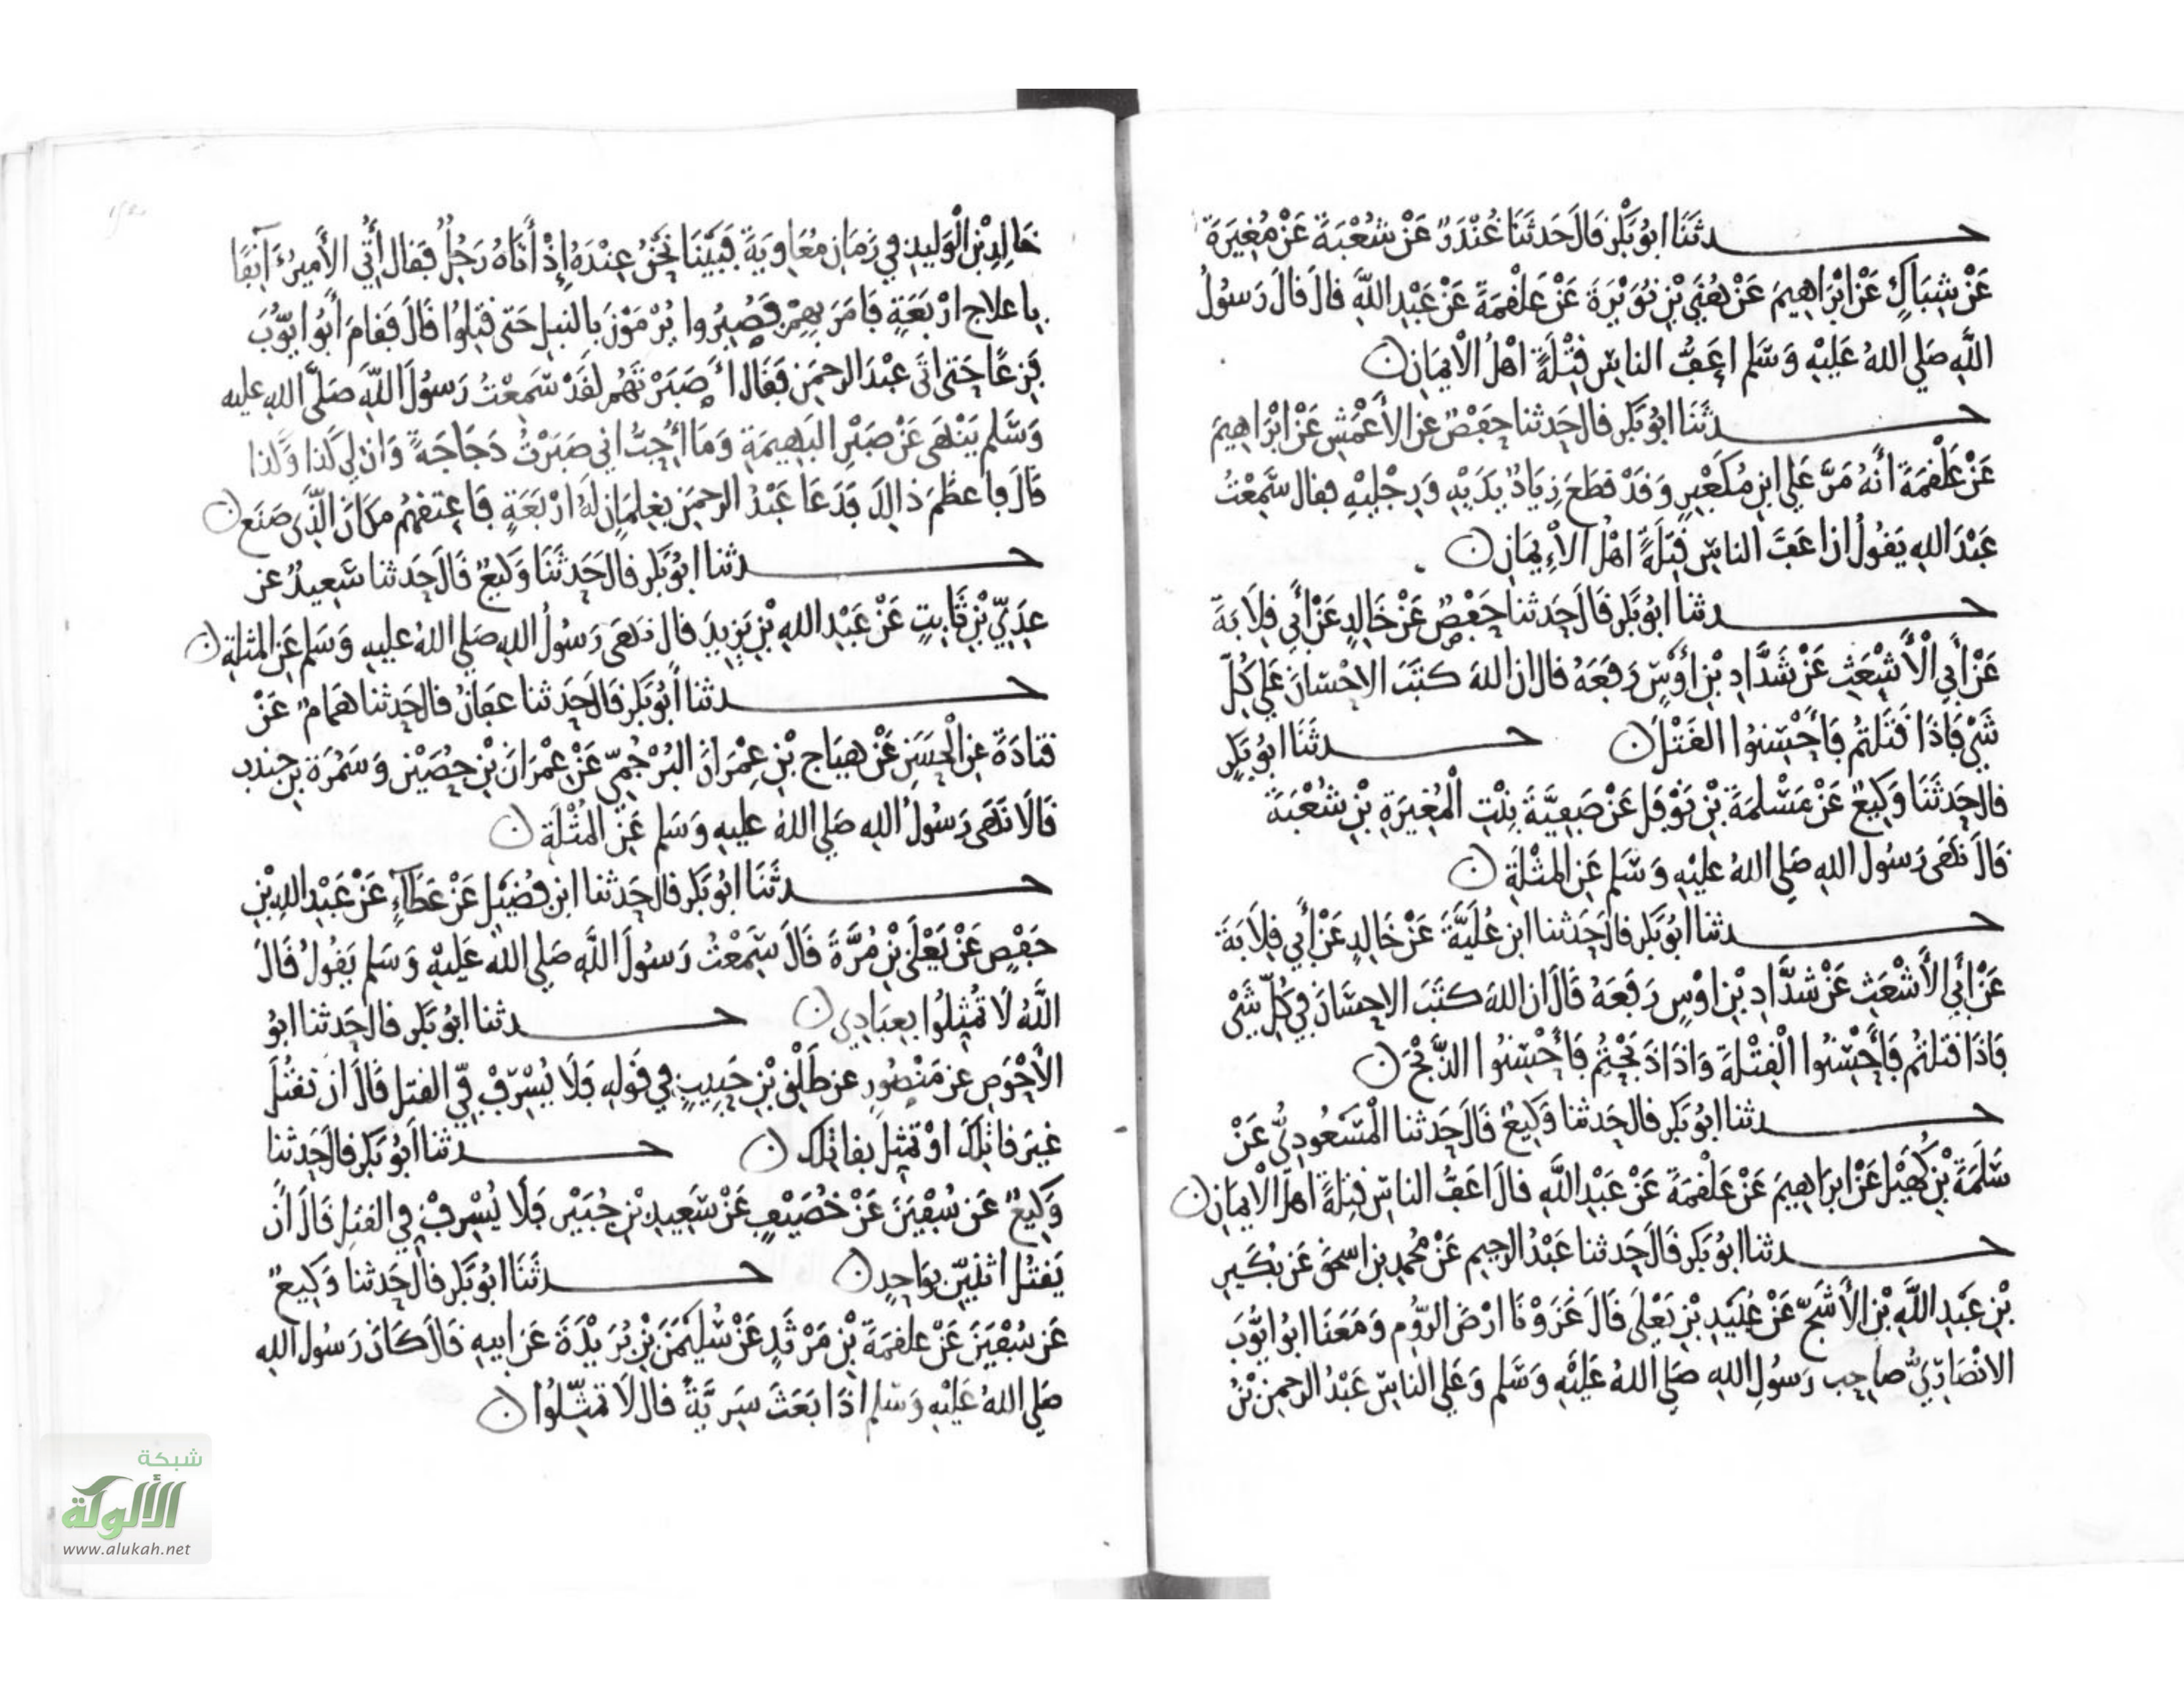 حدثنا ابُو بَكْرٍ قَالَ حَدثَنَا غُنْدَرٌ عَنْ شُعْبَةَ عَنْ مُغِيَرَةَ
عَنْ شِبَاكٍ عَنْ ابْرَاهِيمَ عَنْ هُنَيِّ بْنِ نُوَيْرَةَ عَنْ عَلْقَمَةَ عَنْ عَبْدِ اللَّهِ قالَ قالَ رَسُولُ
اللَّهِ صَلي اللهُ عَلَيْهِ وَسَلم اعَفُّ الناسِ قِتْلَةً اهْلُ الْايمَانِ
حدثَنَا ابُو بَكر قال حَدثنا حَفْصٌ عن الأعْمَشِ عَنْ ابْرَاهِيمَ
عَنْ عَلْقَمَةَ أنهُ مَرَّ عَلي ابنِ مُكَعْبِرٍ وَقَدْ قطَعَ زِيَادٌ يَدَيْهِ وَرِجْلَيْهِ فقال سَمِعْتُ
عَبْدَ اللهِ يَقُولُ ان اعَفَّ الناسِ قِتْلَةً اهْلُ الْإِيمَانِ
حدثنا ابُو بَكر قَالَ حَدثنا حَفْصٌ عَنْ خَالِدٍ عَنْ أَبي قِلَابَةَ
عَنْ أَبِي الْأَشْعَثِ عَنْ شَدَّادِ بْنِ أَوْسٍ رَفَعَهُ قال ان اللهَ كتَبَ الاحْسَانَ عَلي كُلِّ
شَيْ فَاذَا قَتَلتُمْ فَأَحْسِنُوا القَتْلَ حدثَنَا ابوُ بَكرٍ
قال حَدثَنَا وَكِيعٌ عَنْ مَسْلمَةَ بْنِ نَوْفَلٍ عَنْ صَفِيَّةَ بِنْتِ الْمُغِيَرةِ بْنِ شُعْبَةَ
قَالَ نَهَى رَسُولُ اللهِ صَلي اللهُ عَليْهِ وَسَلم عَنِ المُثْلَةِ
حدثنا ابُو بَكر قال حَدثنا ابن عُلَيَّةَ عَنْ خَالِدٍ عَنْ أَبي قِلَابَةَ
عَنْ أَبي الأَشْعَثِ عَنْ شَدَّادِ بْنِ اوْسٍ رَفَعَهُ قَالَ ان اللهَ كتَبَ الاحسَانَ فِي كُلِّ شَيْ
فَاذَا قتَلتُم فَأَحْسِنُوا الْقِتْلَةَ وَاذَا ذَبَحْتُمْ فَأَحْسِنُوا الذَّبْحَ
حدثنا ابُو بَكر قال حَدثنا وَكِيعٌ قَالَ حَدثنا الْمَسْعُودِيُّ عَنْ
سَلَمَةَ بْنِ كُهَيْلٍ عَنْ ابرَاهِيمَ عَنْ عَلْقمَةَ عَنْ عَبْدِ اللَّهِ قالَ اعَفُّ الناسِ قِتلَةً اهلُ الْايمَانِ
حدثنا ابُو بَكر قَالَ حَدثنا عَبْدُ الرحِيمِ عَنْ مُحمدِ بن اسحقَ عَن بُكَيرِ
بْنِ عَبْدِ اللَّهِ بْنِ الأَشَجِّ عَنْ عُبَيْدِ بْنِ يَعْلَى قَالَ غَزَوْنَا ارْضَ الرُّومِ وَمَعَنَا ابوُ ايُّوبَ
الانْصَارِيُّ صاحِب رَسُولِ اللهِ صَلي اللهُ عَلَيْهِ وَسَلم وَعَلي الناسِ عَبْدُ الرحمنِ بْنُ
خَالِدِ بْنِ الْوَلِيدِ في زَمَانِ مُعَاوِيَةَ فَبَيْنَا نَحْنُ عِنْدَهُ إِذْ أَتَاهُ رَجُلٌ فقال أُتِيَ الأَمِيرُ آنِفًا
باعلاج ارْبَعَةٍ فَامَرَ بِهِمْ فَصُبِرُوا يُرْمَوْنَ بالنبلِ حَتى قُتِلُوا قَالَ فَقامَ أبُو ايُّوبَ
فَزِعًا حَتى اتَى عَبْدَ الرحمَنِ فَقَال اَصَبَرْتَهُم لقَدْ سَمِعْتُ رَسُولَ اللهِ صَلَّى اللهُ عليه
وَسَلم يَنْهَى عَنْ صَبْرِ البَهِيمَةِ وَمَا أُحِبُّ اني صَبَرْتُ دَجَاجَةً وَان لي كَذا وَكذا
قَالَ فاعظَمَ ذالِكَ فَدَعَا عَبْدُ الرحمَنِ بِغِلمَانٍ لَهُ ارْبَعَةٍ فَاعتقهُم مَكَانَ الَّذِي صَنَع
حدثنا ابُو بَكر قال حَدثَنَا وَكِيعٌ قَالَ حَدثنا سَعِيدٌ عن
عَدِيِّ بْنِ ثَابِتٍ عَنْ عَبْدِ اللهِ بْنِ يَزِيدَ قال نَهَى رَسُولُ اللهِ صَلي اللهُ عليهِ وَسَلم عَنِ المُثلةِ
حدثنا أَبُو بَكر قَالَ حَدثنا عفانُ قال حَدثنا همَامٌ عَنْ
قتادَةَ عن الْحسَنِ عَنْ هيَاجِ بْنِ عِمْرَانَ البُرْجُمِيِّ عَنْ عِمْرَانَ بْنِ حُصَيْنٍ وَسَمُرَةَ بن جندب
قَالَا نَهَى رَسُولُ اللهِ صَلي اللهُ عليهِ وَسَلم عَنِ المُثْلَةِ
حدثَنَا ابُو بَكر قال حَدثنا ابن فُضَيْلٍ عَنْ عَطَآءٍ عَنْ عَبْدِ اللهِ بْنِ
حَفْصٍ عَنْ يَعْلَى بْنِ مُرَّةَ قَالَ سَمِعْتُ رَسُولَ اللَّهِ صَلي اللهُ عَلَيْهِ وَسَلم يَقُولُ قَالَ
اللَّهُ لَا تُمَثِّلُوا بعِبَادِي حدثنا ابُو بَكر قال حَدثنا ابوُ
الأَحْوَصِ عن مَنْصُورٍ عن طَلْقِ بْنِ حَبِيبٍ فِي قَوْلِهِ فَلَا يُسْرِفْ فِي القتلِ قَالَ ان تَقتُلَ
غيرَ قاتِلِكَ اوْ تمَثِّلَ بقاتِلِك حدثنا أبُو بَكر قال حَدثنا
وَكِيعٌ عَن سُفْيَنَ عَنْ خُصَيْفٍ عَنْ سَعِيدِ بْنِ جُبَيْرٍ فَلَا يُسْرِفْ فِي القتلِ قَالَ أن
يَقتُلَ اثنَيْنِ بوَاحِدٍ حدثَنَا ابُو بَكر قال حَدثنا وَكِيعٌ
عَن سُفْيَنَ عَنْ علقمَةَ بْنِ مَرْثَدٍ عَنْ سُليْمَنَ بْنِ بُرَيْدَةَ عَن ابيهِ قَالَ كَانَ رَسُول اللهِ
صَلي اللهُ عَلَيْهِ وَسَلم اذَا بَعَثَ سَرِيَّةً قال لَا تمَثِّلُوا
شبكة
الألوكة
www.alukah.net